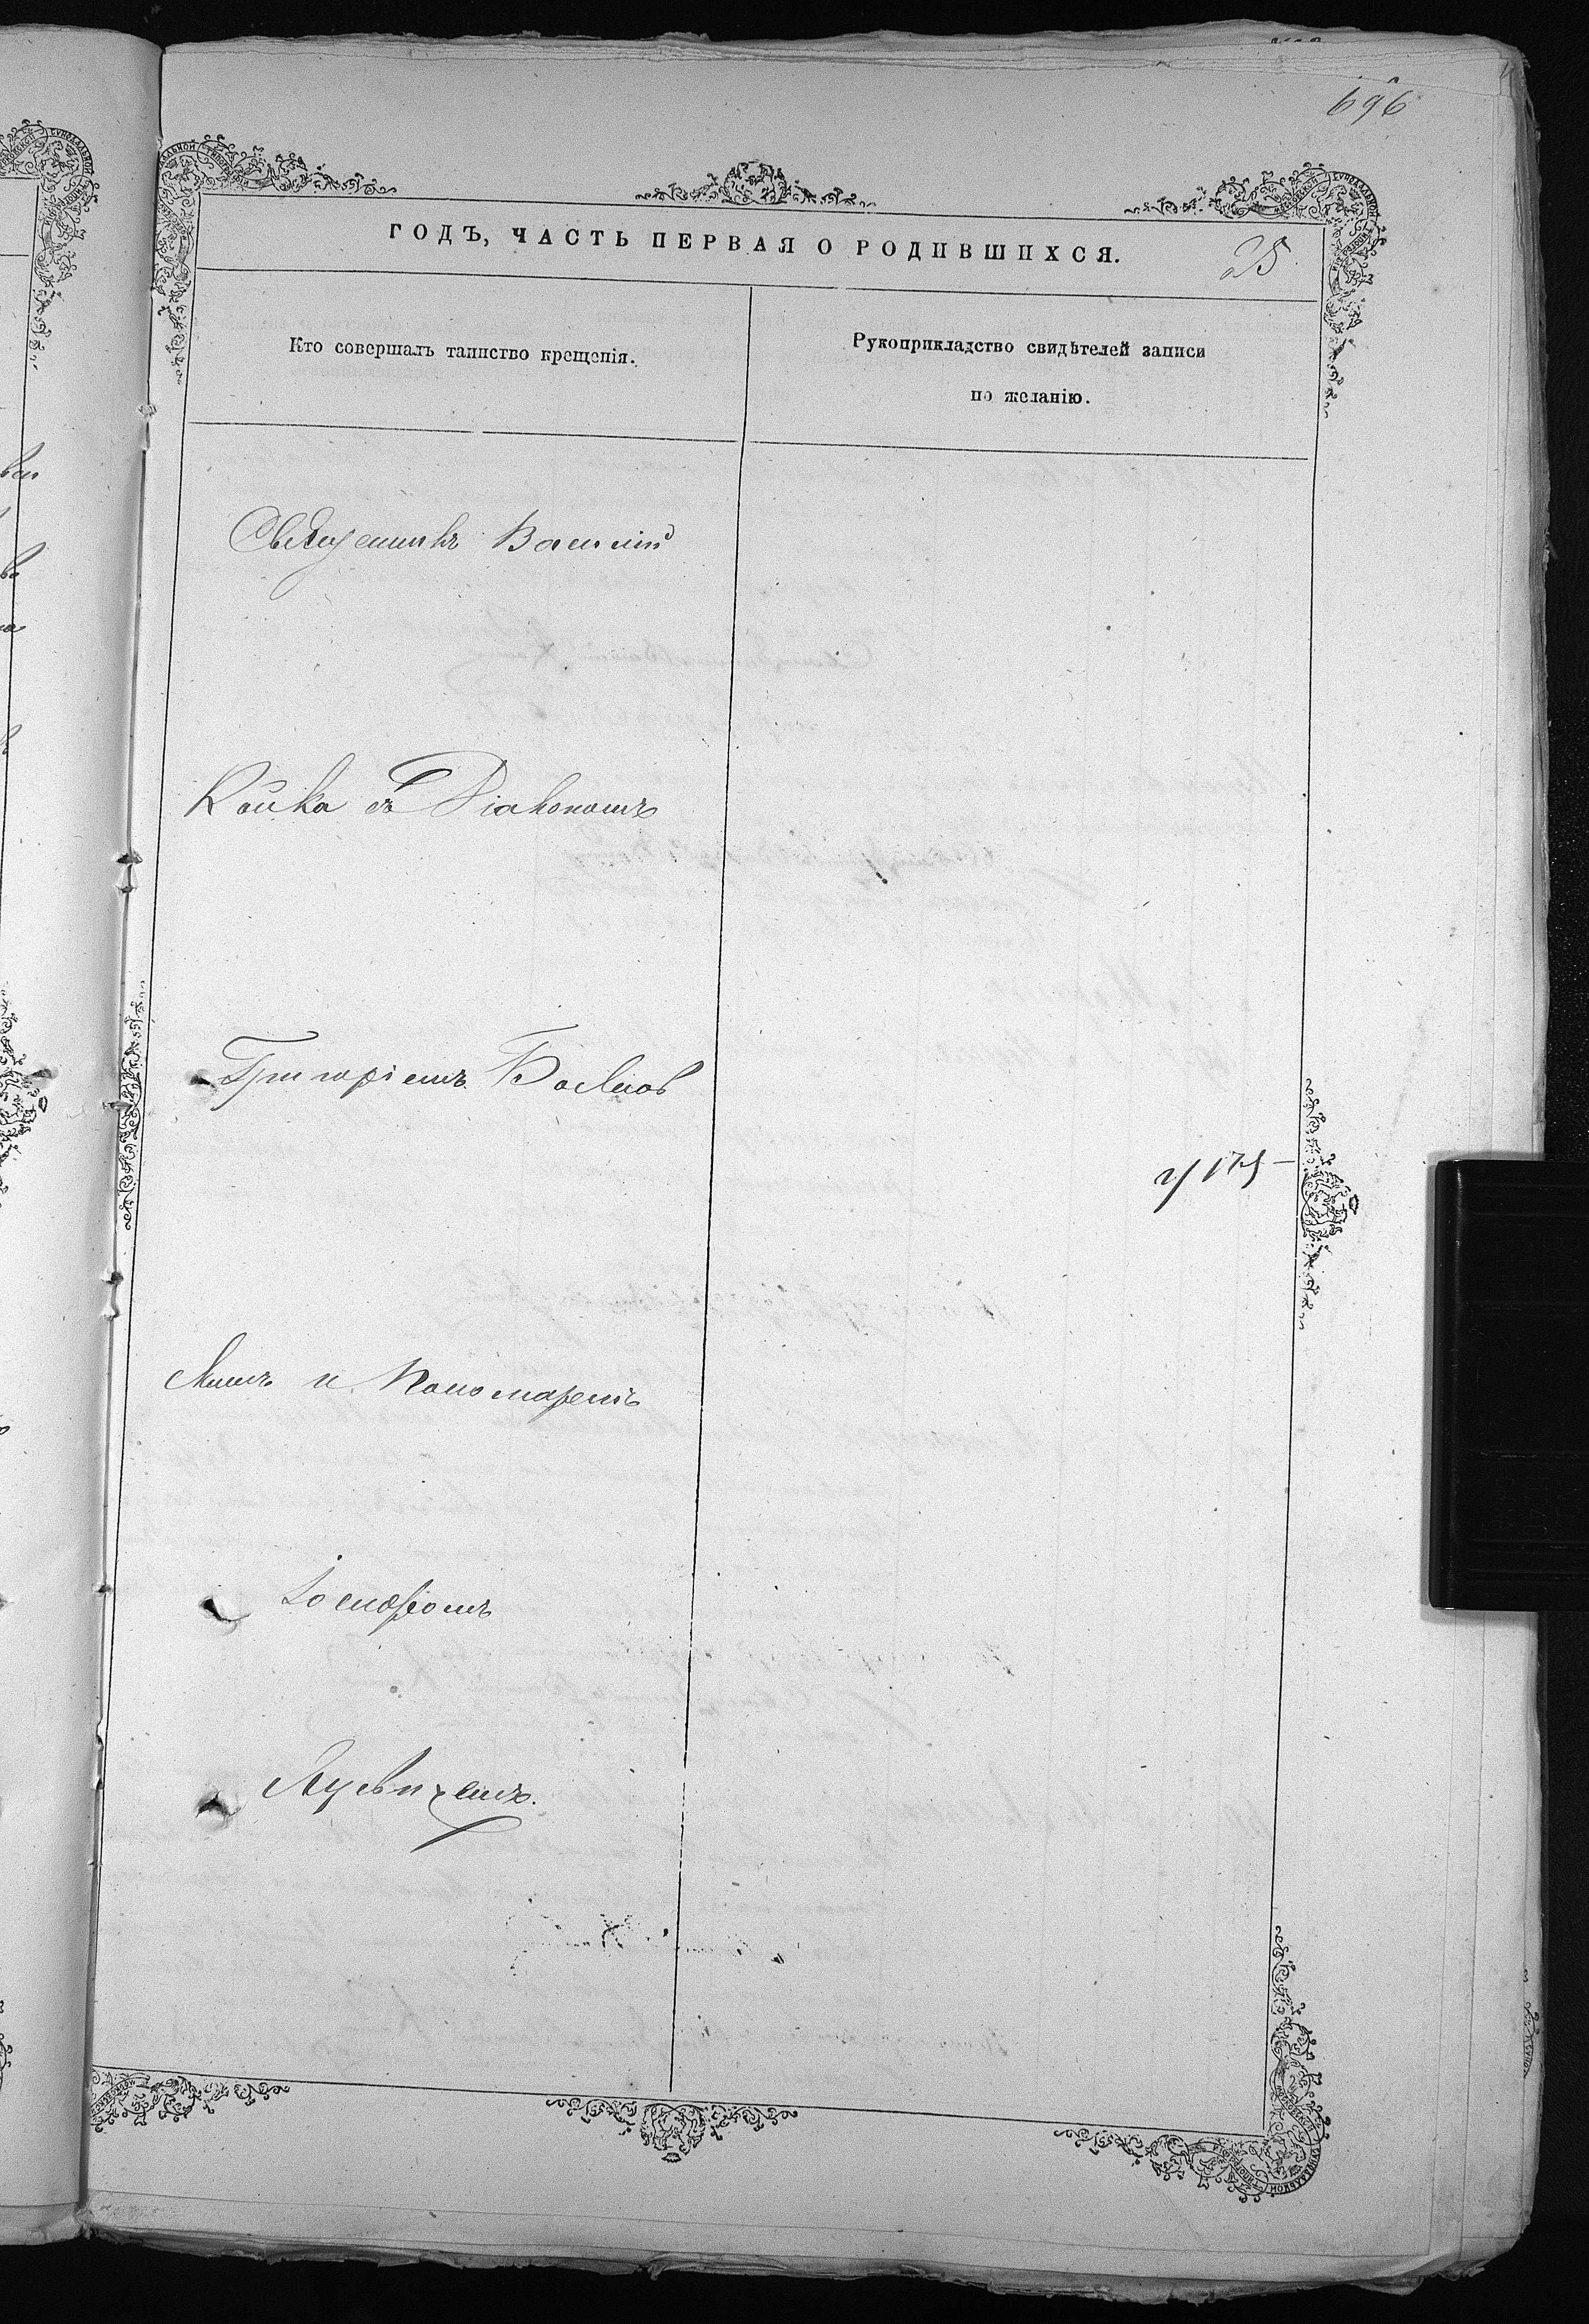 696
ГОДЪ, ЧАСТЬ ПЕРВАЯ О РОДИВШИХСЯ.
25
Кто совершалъ таинство крещенія.
Рукоприкладство свидѣтелей записи
по желанію.
Священникъ Василій
Койка съ Діакономъ
Григоріемъ
и Пономаремъ
Іосифомъ